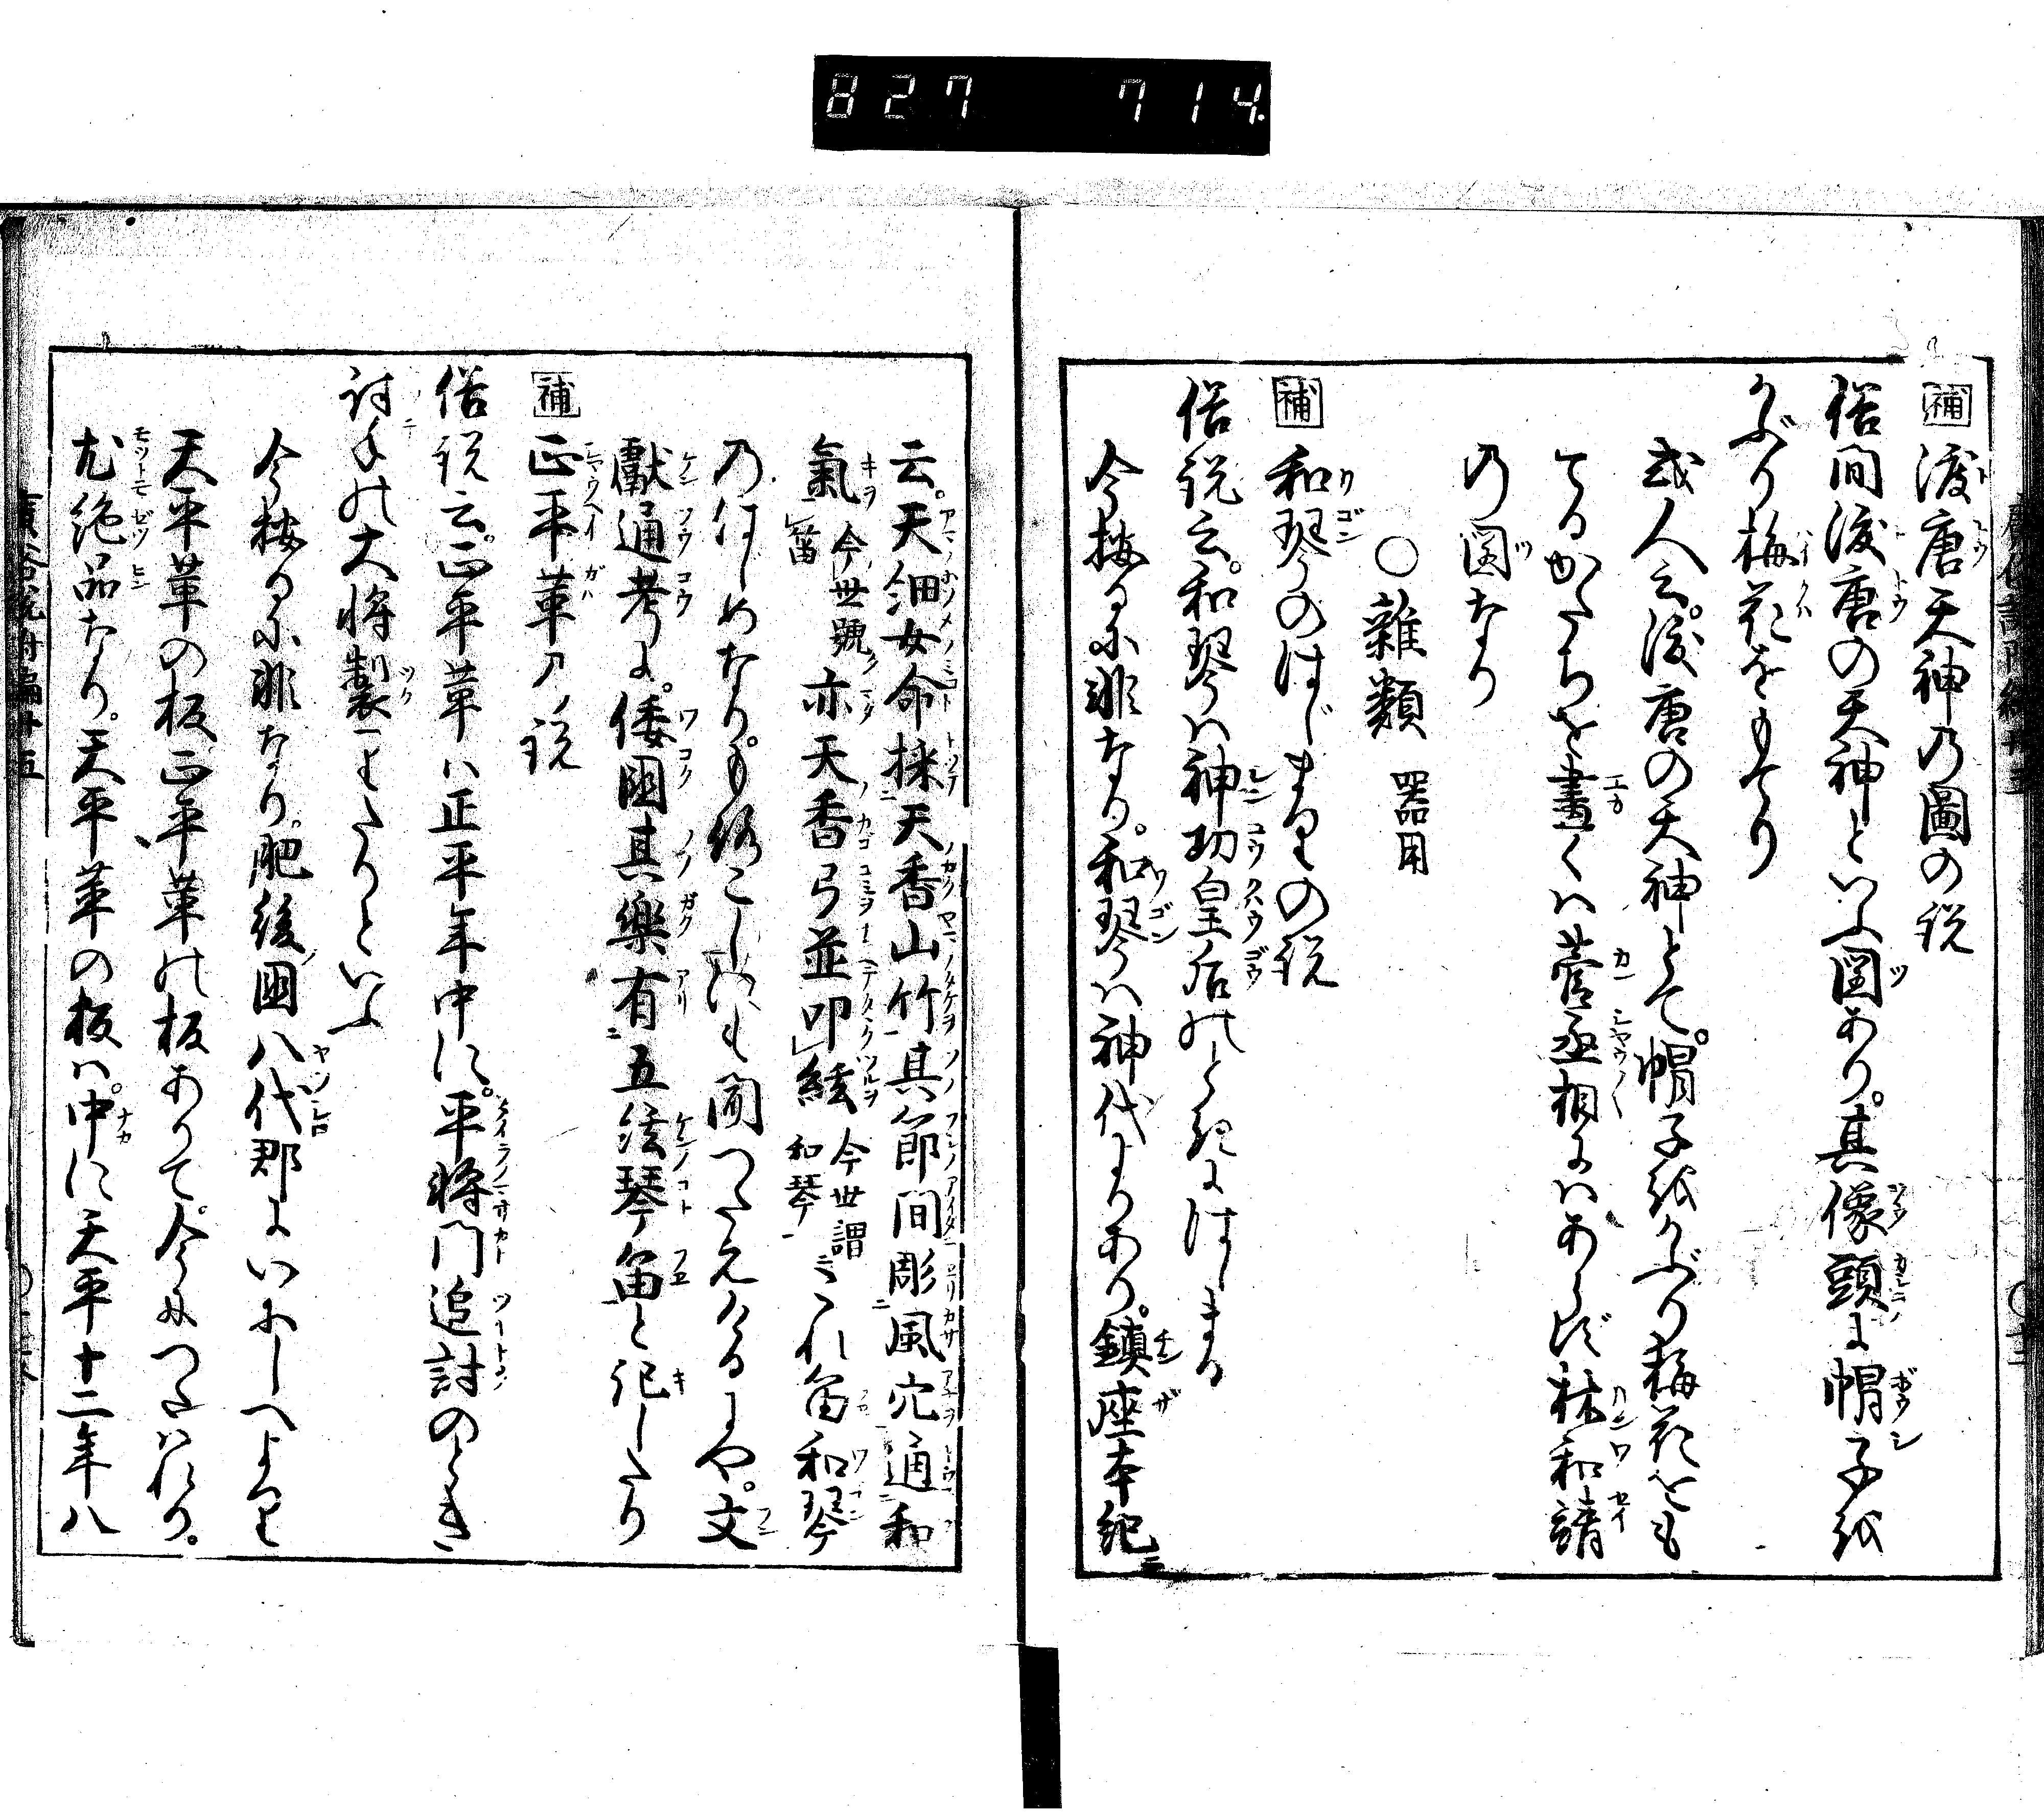 827 714.
補 渡唐天神乃圖の説
俗間渡唐の天神といふ図あり。其像頭に帽子を
かぶり梅花をもてり
或人云。渡唐の天神とて。帽子をかぶり梅花をも
てるかたちを畫くは菅丞相にはあらず林和靖
の図なり
○雜類 器用
補 和琴のはじまりの説
俗説云。和琴は神功皇后のときにはじまる
今按るに非なり。和琴は神代よりあり。鎮座本紀ニ
云。天細女命採天香山竹其節間彫風穴通和
氣今世號笛亦天香弓並叩絃今世謂和琴これ笛和琴
のはじめなり。もろこしにも聞つたえけるにや。文
獻通考に。倭國其樂有五絃琴笛と記したり
補 正平革ノ説
俗説云。正平革は正平年中に。平將門追討のとき
討手の大将製したりといふ
今按るに非なり。肥後國八代郡にいにしへより
天平革の板正平革の板ありて。今につたはれり。
尤絶品なり。天平革の板は。中に天平十二年八